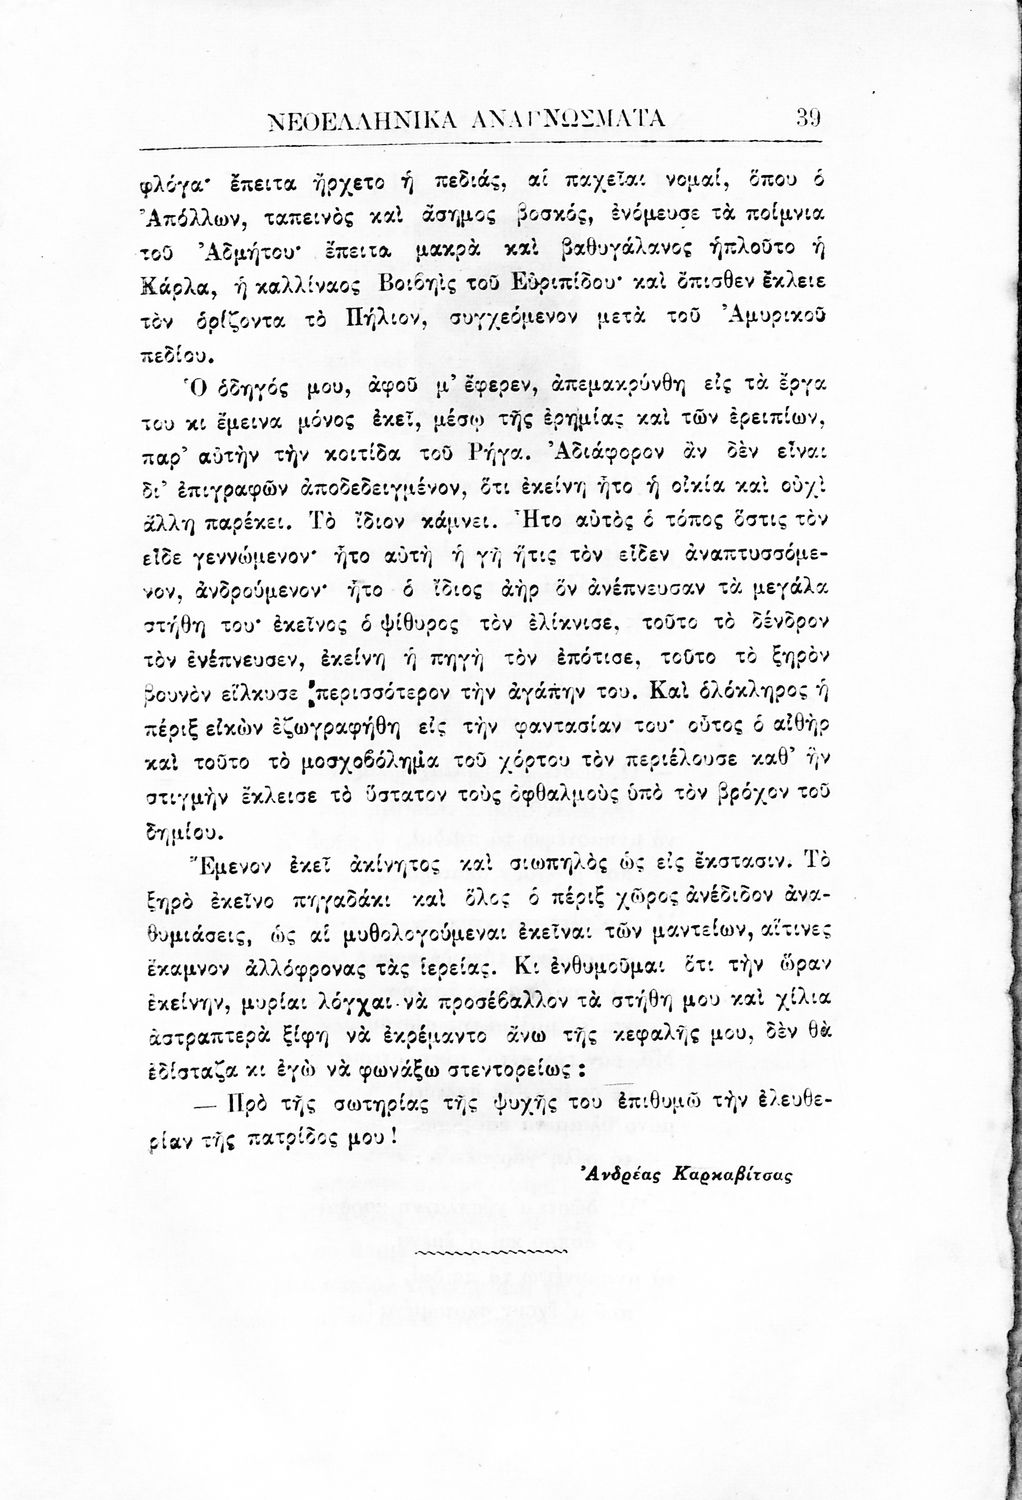 ΝΕΟΕΛΛΗΝΙΚΑ ΑΝΑΓΝΩΣΜΑΤΑ 39
φλόγα· ἔπειτα ἤρχετο ἡ πεδιάς, αἱ παχεῖαι νομαί, ὅπου ὁ
Ἀπόλλων, ταπεινὸς καὶ ἄσημος βοσκός, ἐνόμευσε τὰ ποίμνια
τοῦ Ἀδμήτου· ἔπειτα μακρὰ καὶ βαθυγάλανος ἡπλοῦτο ἡ
Κάρλα, ἡ καλλίναος Βοιβηῒς τοῦ Εὐριπίδου· καὶ ὄπισθεν ἔκλειε
τὸν ὁρίζοντα τὸ Πήλιον, συγχεόμενον μετὰ τοῦ Ἀμυρικοῦ
πεδίου.
Ὁ ὁδηγός μου, ἀφοῦ μ' ἔφερεν, ἀπεμακρύνθη εἰς τὰ ἔργα
του κι ἔμεινα μόνος ἐκεῖ, μέσῳ τῆς ἐρημίας καὶ τῶν ἐρειπίων,
παρ' αὐτὴν τὴν κοιτίδα τοῦ Ρήγα. Ἀδιάφορον ἂν δὲν εἶναι
δι' ἐπιγραφῶν ἀποδεδειγμένον, ὅτι ἐκείνη ἦτο ἡ οἰκία καὶ οὐχὶ
ἄλλη παρέκει. Τὸ ἴδιον κάμνει. Ἦτο αὐτὸς ὁ τόπος ὅστις τὸν
εἶδε γεννώμενον· ἦτο αὐτὴ ἡ γῆ ἥτις τὸν εἶδεν ἀναπτυσσόμε-
νον, ἀνδρούμενον· ἦτο ὁ ἴδιος ἀὴρ ὃν ἀνέπνευσαν τὰ μεγάλα
στήθη του· ἐκεῖνος ὁ ψίθυρος τὸν ἐλίκνισε, τοῦτο τὸ δένδρον
τὸν ἐνέπνευσεν, ἐκείνη ἡ πηγὴ τὸν ἐπότισε, τοῦτο τὸ ξηρὸν
βουνὸν εἵλκυσε περισσότερον τὴν ἀγάπην του. Καὶ ὁλόκληρος ἡ
πέριξ εἰκὼν ἐζωγραφήθη εἰς τὴν φαντασίαν του· οὗτος ὁ αἰθὴρ
καὶ τοῦτο τὸ μοσχοβόλημα τοῦ χόρτου τὸν περιέλουσε καθ' ἣν
στιγμὴν ἔκλεισε τὸ ὕστατον τοὺς ὀφθαλμοὺς ὑπὸ τὸν βρόχον τοῦ
δημίου.
Ἔμενον ἐκεῖ ἀκίνητος καὶ σιωπηλὸς ὡς εἰς ἔκστασιν. Τὸ
ξηρὸ ἐκεῖνο πηγαδάκι καὶ ὅλος ὁ πέριξ χῶρος ἀνέδιδον ἀνα-
θυμιάσεις, ὡς αἱ μυθολογούμεναι ἐκεῖναι τῶν μαντείων, αἵτινες
ἔκαμνον ἀλλόφρονας τὰς ἱερείας. Κι ἐνθυμοῦμαι ὅτι τὴν ὥραν
ἐκείνην, μυρίαι λόγχαι νὰ προσέβαλλον τὰ στήθη μου καὶ χίλια
ἀστραπτερὰ ξίφη νὰ ἐκρέμαντο ἄνω τῆς κεφαλῆς μου, δὲν θὰ
ἐδίσταζα κι ἐγὼ νὰ φωνάξω στεντορείως :
— Πρὸ τῆς σωτηρίας τῆς ψυχῆς του ἐπιθυμῶ τὴν ἐλευθε-
ρίαν τῆς πατρίδος μου !
Ἀνδρέας Καρκαβίτσας